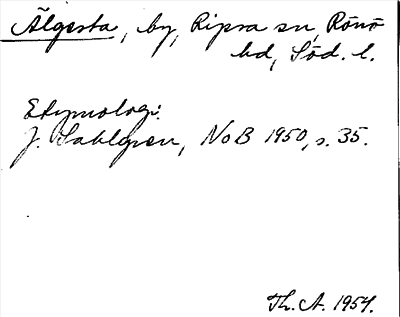 Älgesta, by, Ripsa sn, Rönö
hd, Söd. l.
Etymologi:
J. Sahlgren, NoB 1950, s. 35.
Th. A. 1954.